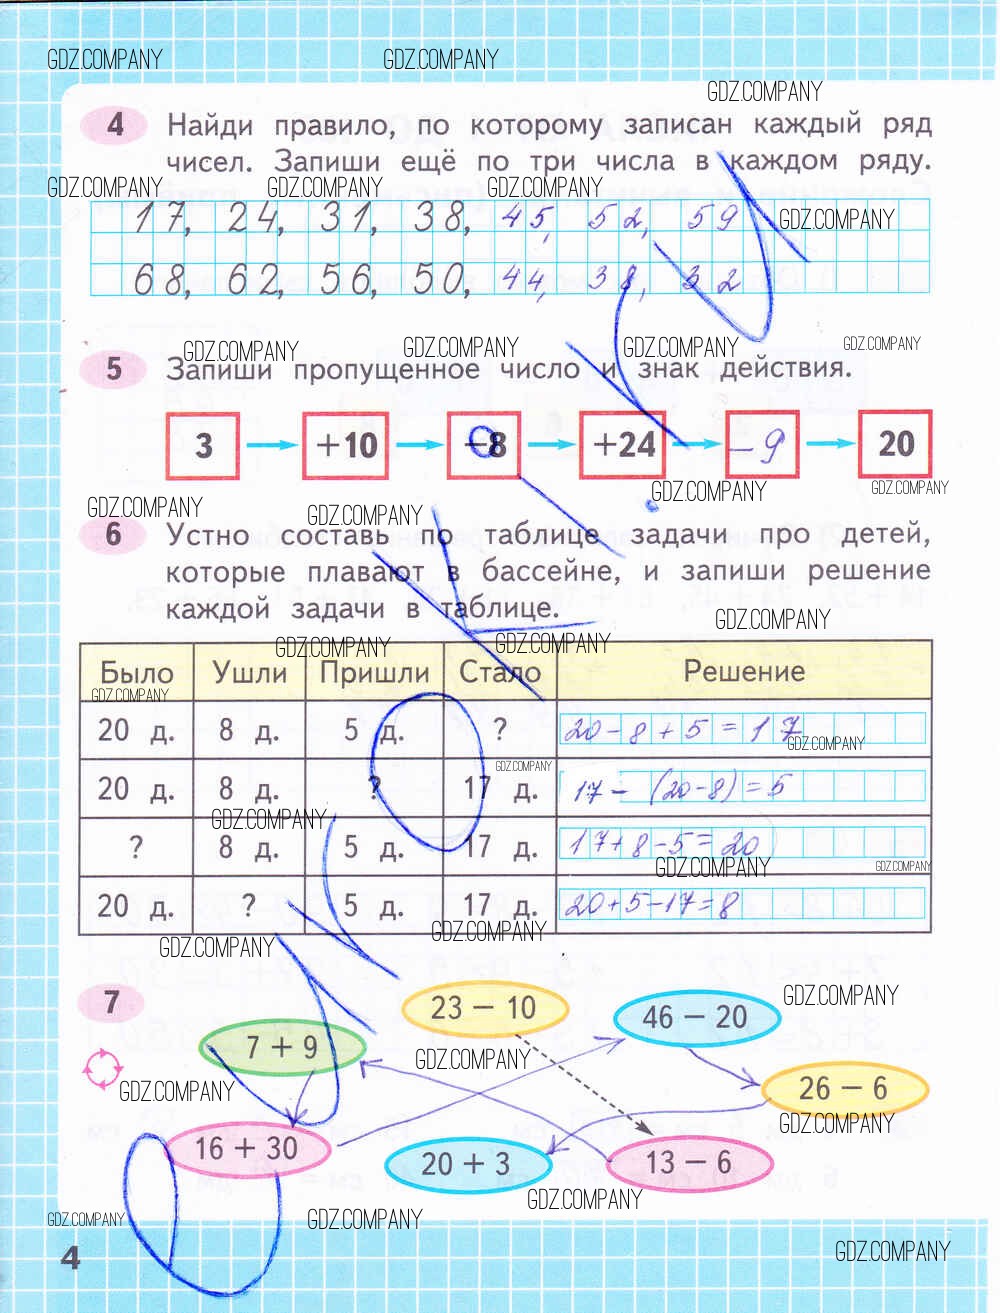 GDZ.COMPANY GDZ.COMPANY
GDZ.COMPANY
4 Найди правило, по которому записан каждый ряд
чисел. Запиши ещё по три числа в каждом ряду.
GDZ.COMPANY GDZ.COMPANY GDZ.COMPANY
17, 24, 31, 38, 45, 52, 59
GDZ.COMPANY
68, 62, 56, 50, 44, 38, 32
GDZ.COMPANY GDZ.COMPANY GDZ.COMPANY GDZ.COMPANY
5 Запиши пропущенное число и знак действия.
3 +10 −8 +24 −9 20
GDZ.COMPANY GDZ.COMPANY
GDZ.COMPANY GDZ.COMPANY
6 Устно составь по таблице задачи про детей,
которые плавают в бассейне, и запиши решение
каждой задачи в таблице.
GDZ.COMPANY
GDZ.COMPANY GDZ.COMPANY
Было Ушли Пришли Стало Решение
GDZ.COMPANY
20 д. 8 д. 5 д. ? 20-8+5=17
GDZ.COMPANY
GDZ.COMPANY
20 д. 8 д. ? 17 д. 17-(20-8)=5
GDZ.COMPANY
? 8 д. 5 д. 17 д. 17+8-5=20
GDZ.COMPANY GDZ.COMPANY
20 д. ? 5 д. 17 д. 20+5-17=8
GDZ.COMPANY GDZ.COMPANY
7 23 − 10 46 − 20
GDZ.COMPANY
7 + 9
GDZ.COMPANY
26 − 6
GDZ.COMPANY
GDZ.COMPANY
16 + 30 20 + 3 13 − 6
GDZ.COMPANY
GDZ.COMPANY GDZ.COMPANY
4
GDZ.COMPANY